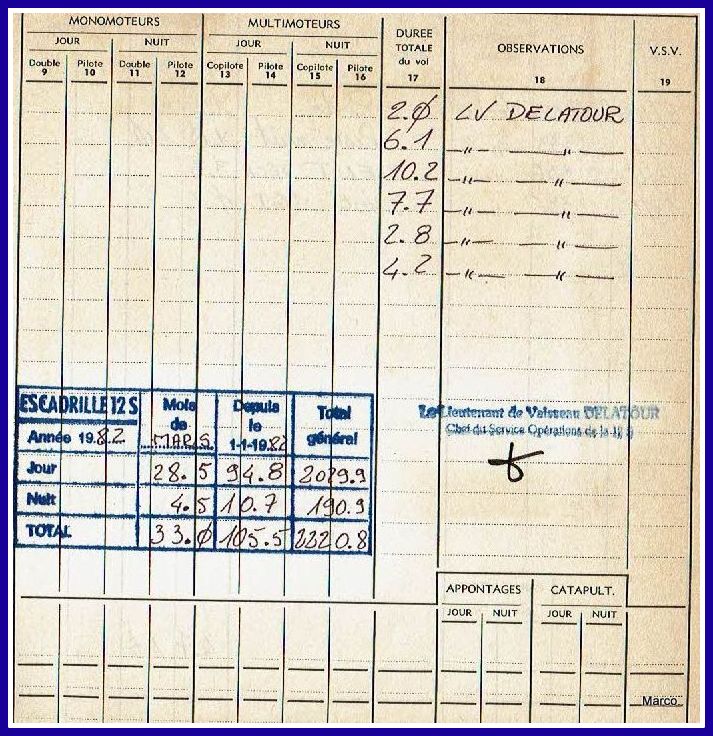 MONOMOTEURS MULTIMOTEURS DUREE TOTALE du vol OBSERVATIONS V.S.V.
JOUR NUIT JOUR NUIT
Double 9 Pilote 10 Double 11 Pilote 12 Copilote 13 Pilote 14 Copilote 15 Pilote 16 17 18 19
2.0 LV DELATOUR
6.1 -"- -"-
10.2 -"- -"-
7.7 -"- -"-
2.8 -"- -"-
4.2 -"- -"-
ESCADRILLE 12 S Mois de Depuis le Total général
Année 1982 MARS 1-1-1982
Jour 28.5 94.8 2029.9
Nuit 4.5 10.7 190.9
TOTAL 33.0 105.5 2220.8
Le Lieutenant de Vaisseau DELATOUR
Chef du Service Opérations de la 12 S
APPONTAGES CATAPULT.
JOUR NUIT JOUR NUIT
Marco